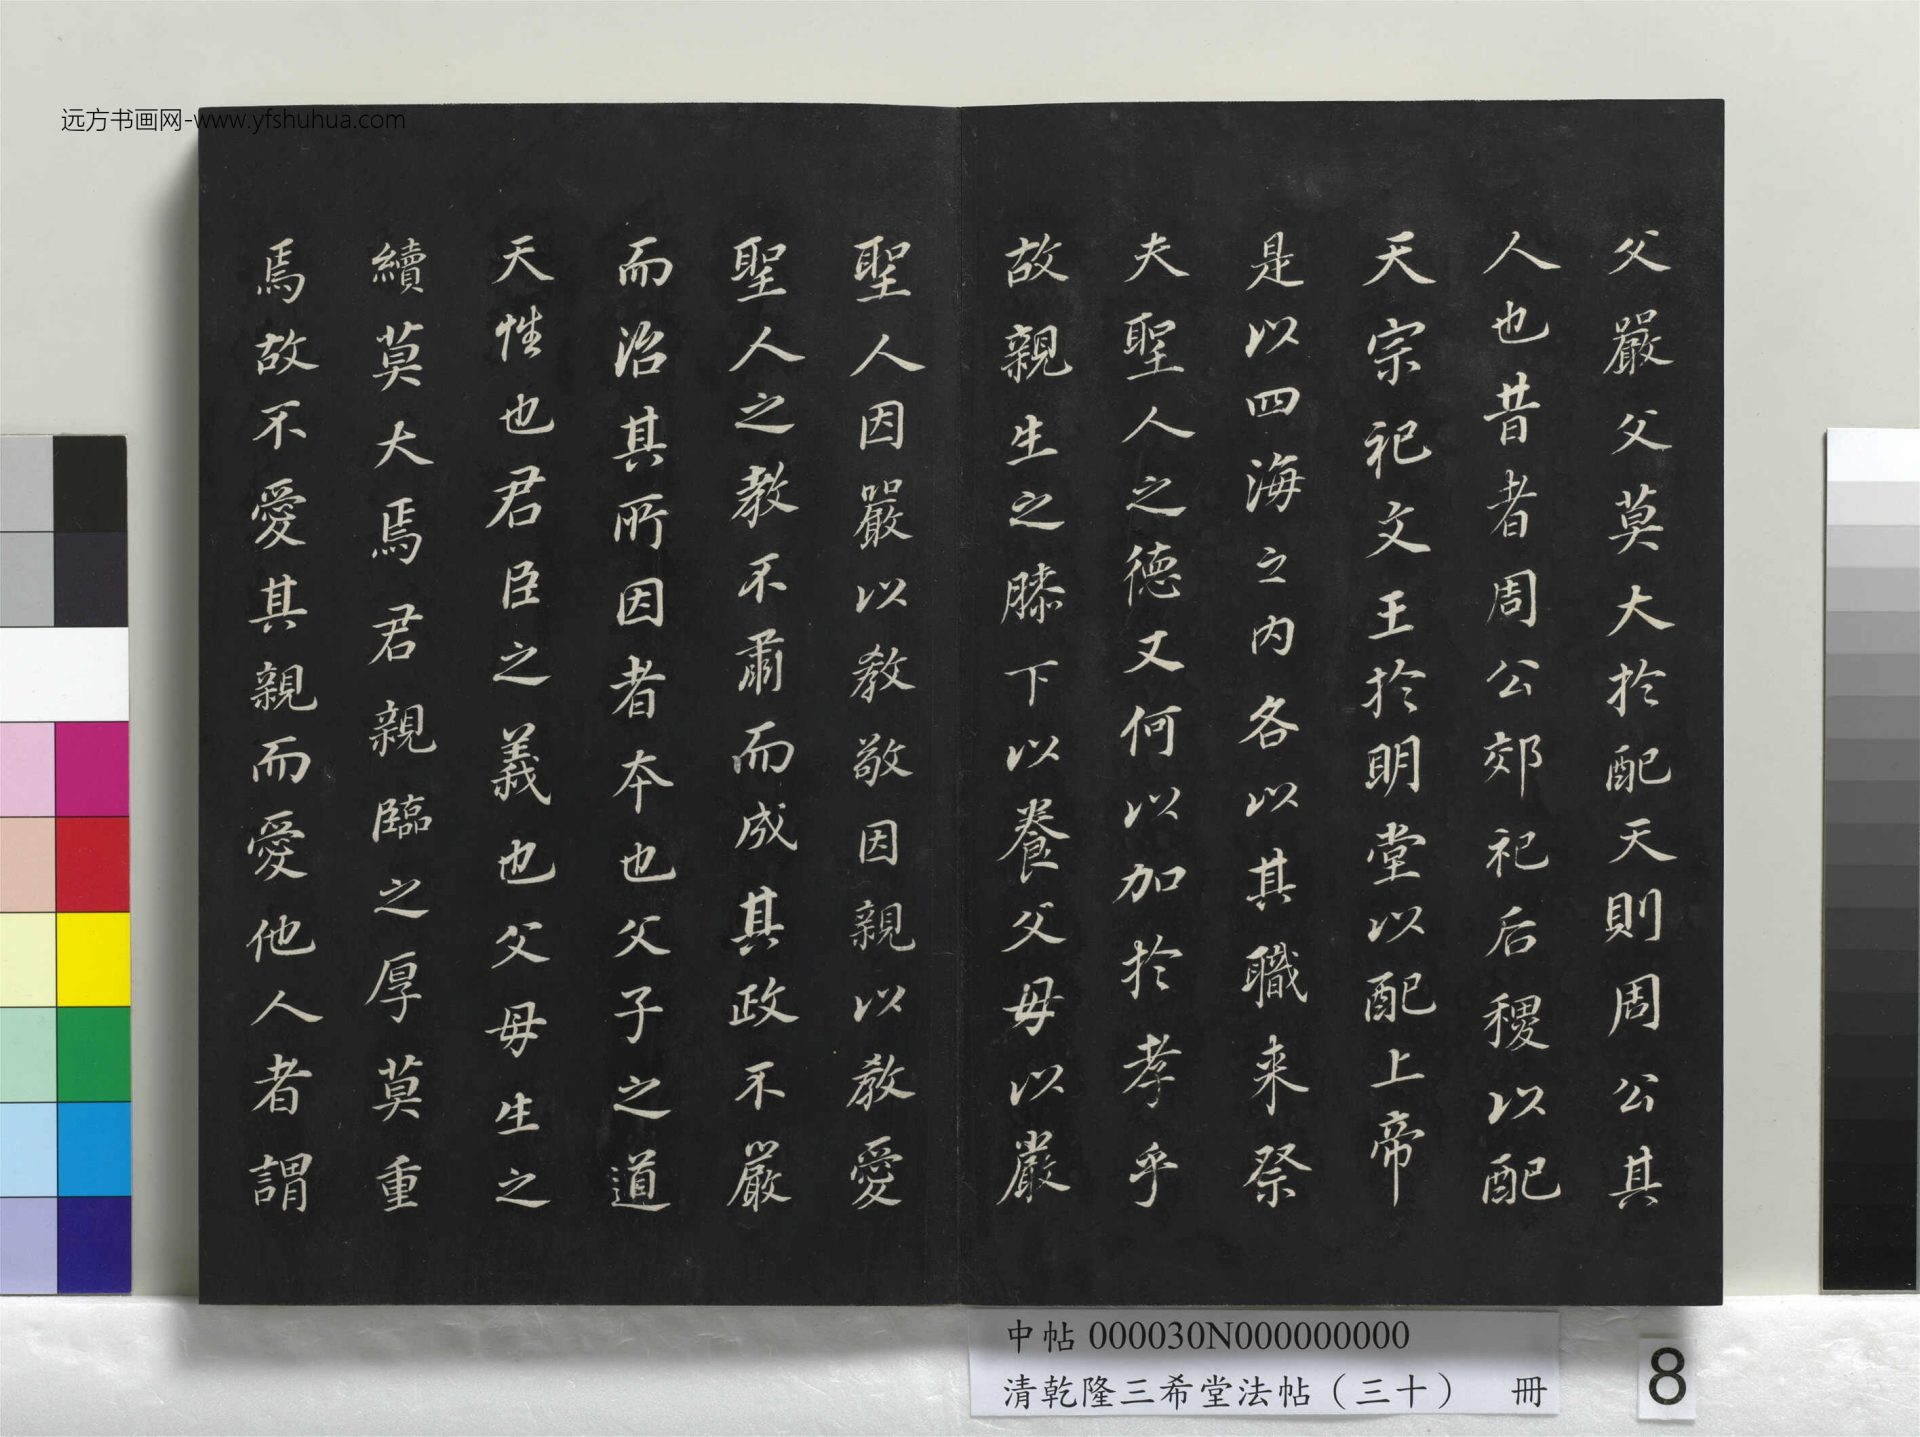 远方书画网-www.yfshuhua.com
父嚴父莫大於配天則周公其
人也昔者周公郊祀后稷以配
天宗祀文王於明堂以配上帝
是以四海之內各以其職来祭
夫聖人之德又何以加於孝乎
故親生之膝下以養父母以嚴
聖人因嚴以教敬因親以教愛
聖人之教不肅而成其政不嚴
而治其所因者本也父子之道
天性也君臣之義也父母生之
續莫大焉君親臨之厚莫重
焉故不愛其親而愛他人者謂
中帖 000030N000000000
清乾隆三希堂法帖（三十） 冊
8